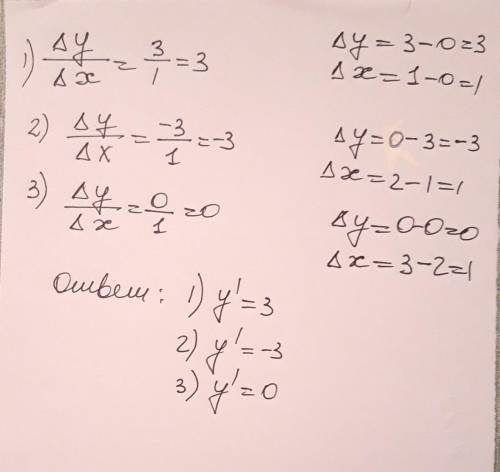 1) Δy/Δx = 3/1 = 3
Δy = 3-0=3
Δx = 1-0=1
2) Δy/Δx = -3/1 = -3
Δy = 0-3=-3
Δx = 2-1=1
3) Δy/Δx = 0/1 = 0
Δy = 0-0=0
Δx = 3-2=1
Ответ: 1) y' = 3
2) y' = -3
3) y' = 0